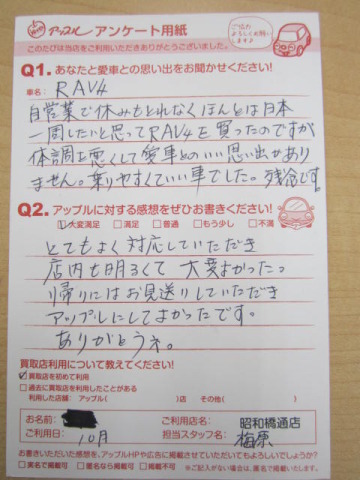 アップル アンケート用紙
ご協力よろしくお願いします♪
このたびは当店をご利用いただきありがとうございました。
Q1. あなたと愛車との思い出をお聞かせください!
車名: RAV4
自営業で休みもとれなくほんとは日本
一周したいと思ってRAV4を買ったのですが
体調を悪くして愛車とのいい思い出があり
ません。乗りやすくていい車でした。残念です。
Q2. アップルに対する感想をぜひお書きください!
□大変満足 □満足 □普通 □もう少し □不満
とてもよく対応していただき
店内も明るくて大変よかった。
帰りにはお見送りしていただき
アップルにしてよかったです。
ありがとうネ。
買取店利用について教えてください!
□買取店を初めて利用
□過去に買取店を利用したことがある
利用した店舗: アップル( )店 その他( )
お名前:
ご利用店名: 昭和橋通店
ご利用日: 10月
担当スタッフ名: 梅原
お書きいただいた感想を、アップルHPや広告に掲載させていただいてもよろしいでしょうか?
□実名で掲載可 □匿名なら掲載可 □掲載不可 ※ご記入がない場合は、匿名で掲載いたします。